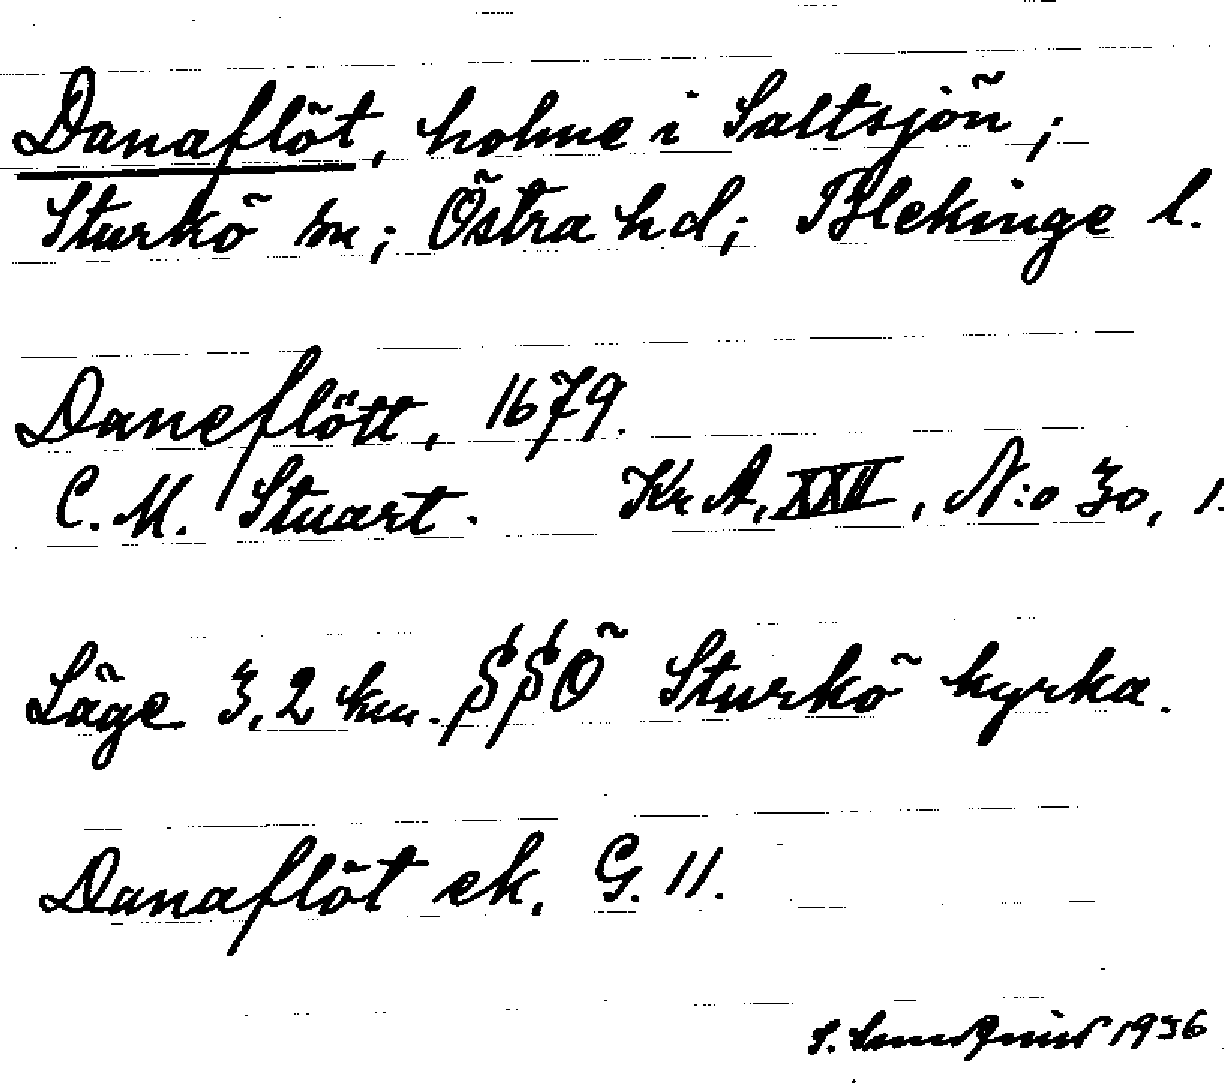 Danaflöt, holme i Saltsjön;
Sturkö sn; Östra hd; Blekinge l.
Daneflött, 1679.
C. M. Stuart. Kr A, XXII, N:o 30, 1.
Läge 3,2 km. SSÖ Sturkö kyrka.
Danaflöt ek. G. 11.
1936